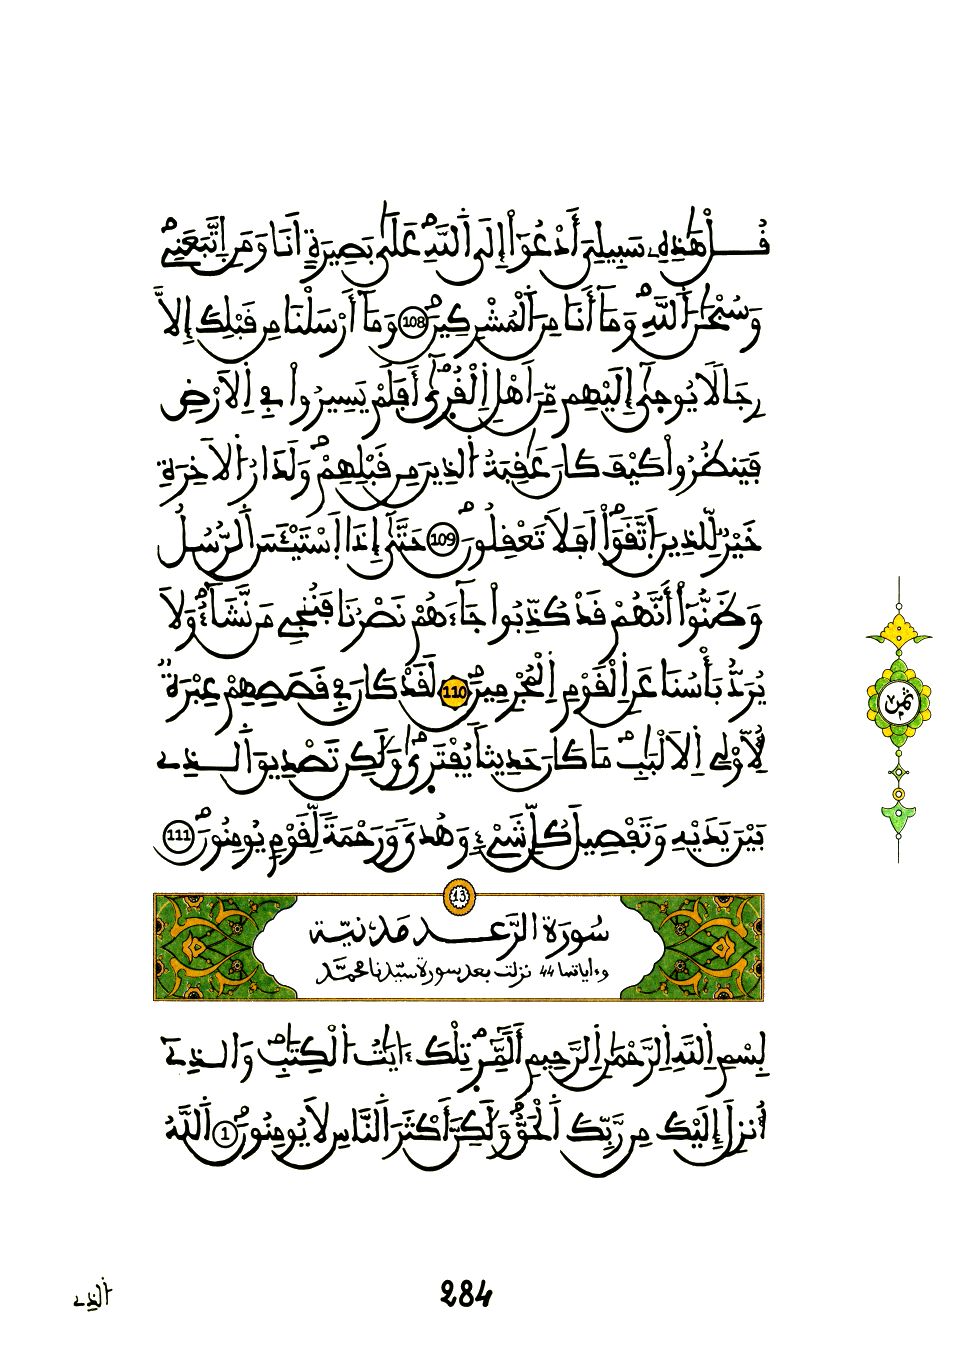 قُلْ هَٰذِهِۦ سَبِيلِيَ أَدْعُوٓاْ إِلَى اَ۬للَّهِۖ عَلَىٰ بَصِيرَةٍ اَنَا وَمَنِ اِ۪تَّبَعَنِےۖ
وَسُبْحَٰنَ اَ۬للَّهِۖ وَمَآ أَنَا مِنَ اَ۬لْمُشْرِكِينَۖ 108 وَمَآ أَرْسَلْنَا مِن قَبْلِكَ إِلَّا
رِجَالاٗ يُوح۪يٰٓ إِلَيْهِم مِّنَ اَهْلِ اِ۬لْقُر۪يٰٓۖ أَفَلَمْ يَسِيرُواْ فِے اِ۬لَارْضِ
فَيَنظُرُواْ كَيْفَ كَانَ عَٰقِبَةُ اُ۬لذِينَ مِن قَبْلِهِمْۖ وَلَدَارُ اُ۬لَاخِرَةِ
خَيْرٞ لِّلذِينَ اَ۪تَّقَوَاْۖ اَفَلَا تَعْقِلُونَۖ 109 حَتَّىٰٓ إِذَا اَ۪سْتَيْـَٔسَ اَ۬لرُّسُلُ
وَظَنُّوٓاْ أَنَّهُمْ قَدْ كُذِّبُواْ جَآءَهُمْ نَصْرُنَا فَنُنجِے مَن نَّشَآءُۖ وَلَا
يُرَدُّ بَأْسُنَا عَنِ اِ۬لْقَوْمِ اِ۬لْمُجْرِمِينَۖ 110 لَقَدْ كَانَ فِے قَصَصِهِمْ عِبْرَةٞ
لِّأُوْلِے اِ۬لَالْبَٰبِۖ مَا كَانَ حَدِيثاٗ يُفْتَر۪يٰۖ وَلَٰكِن تَصْدِيقَ اَ۬لذِے
بَيْنَ يَدَيْهِ وَتَفْصِيلَ كُلِّ شَےْءٖ وَهُديٗ وَرَحْمَةٗ لِّقَوْمٖ يُومِنُونَۖ 111
13
سُورَةُ الرَّعْدِ مَدَنِيَّة
وءاياتها 44 نزلت بعد سورة سيّدنا محمّد
بِسْمِ اِ۬للَّهِ اِ۬لرَّحْمَٰنِ اِ۬لرَّحِيمِ أَلَٓمِّٓر۪ۖ تِلْكَ ءَايَٰتُ اُ۬لْكِتَٰبِۖ وَالذِےٓ
أُنزِلَ إِلَيْكَ مِن رَّبِّكَ اَ۬لْحَقُّۖ وَلَٰكِنَّ أَكْثَرَ اَ۬لنَّاسِ لَا يُومِنُونَۖ 1 اَ۬للَّهُ
ثمن
284
اَ۬لذِے